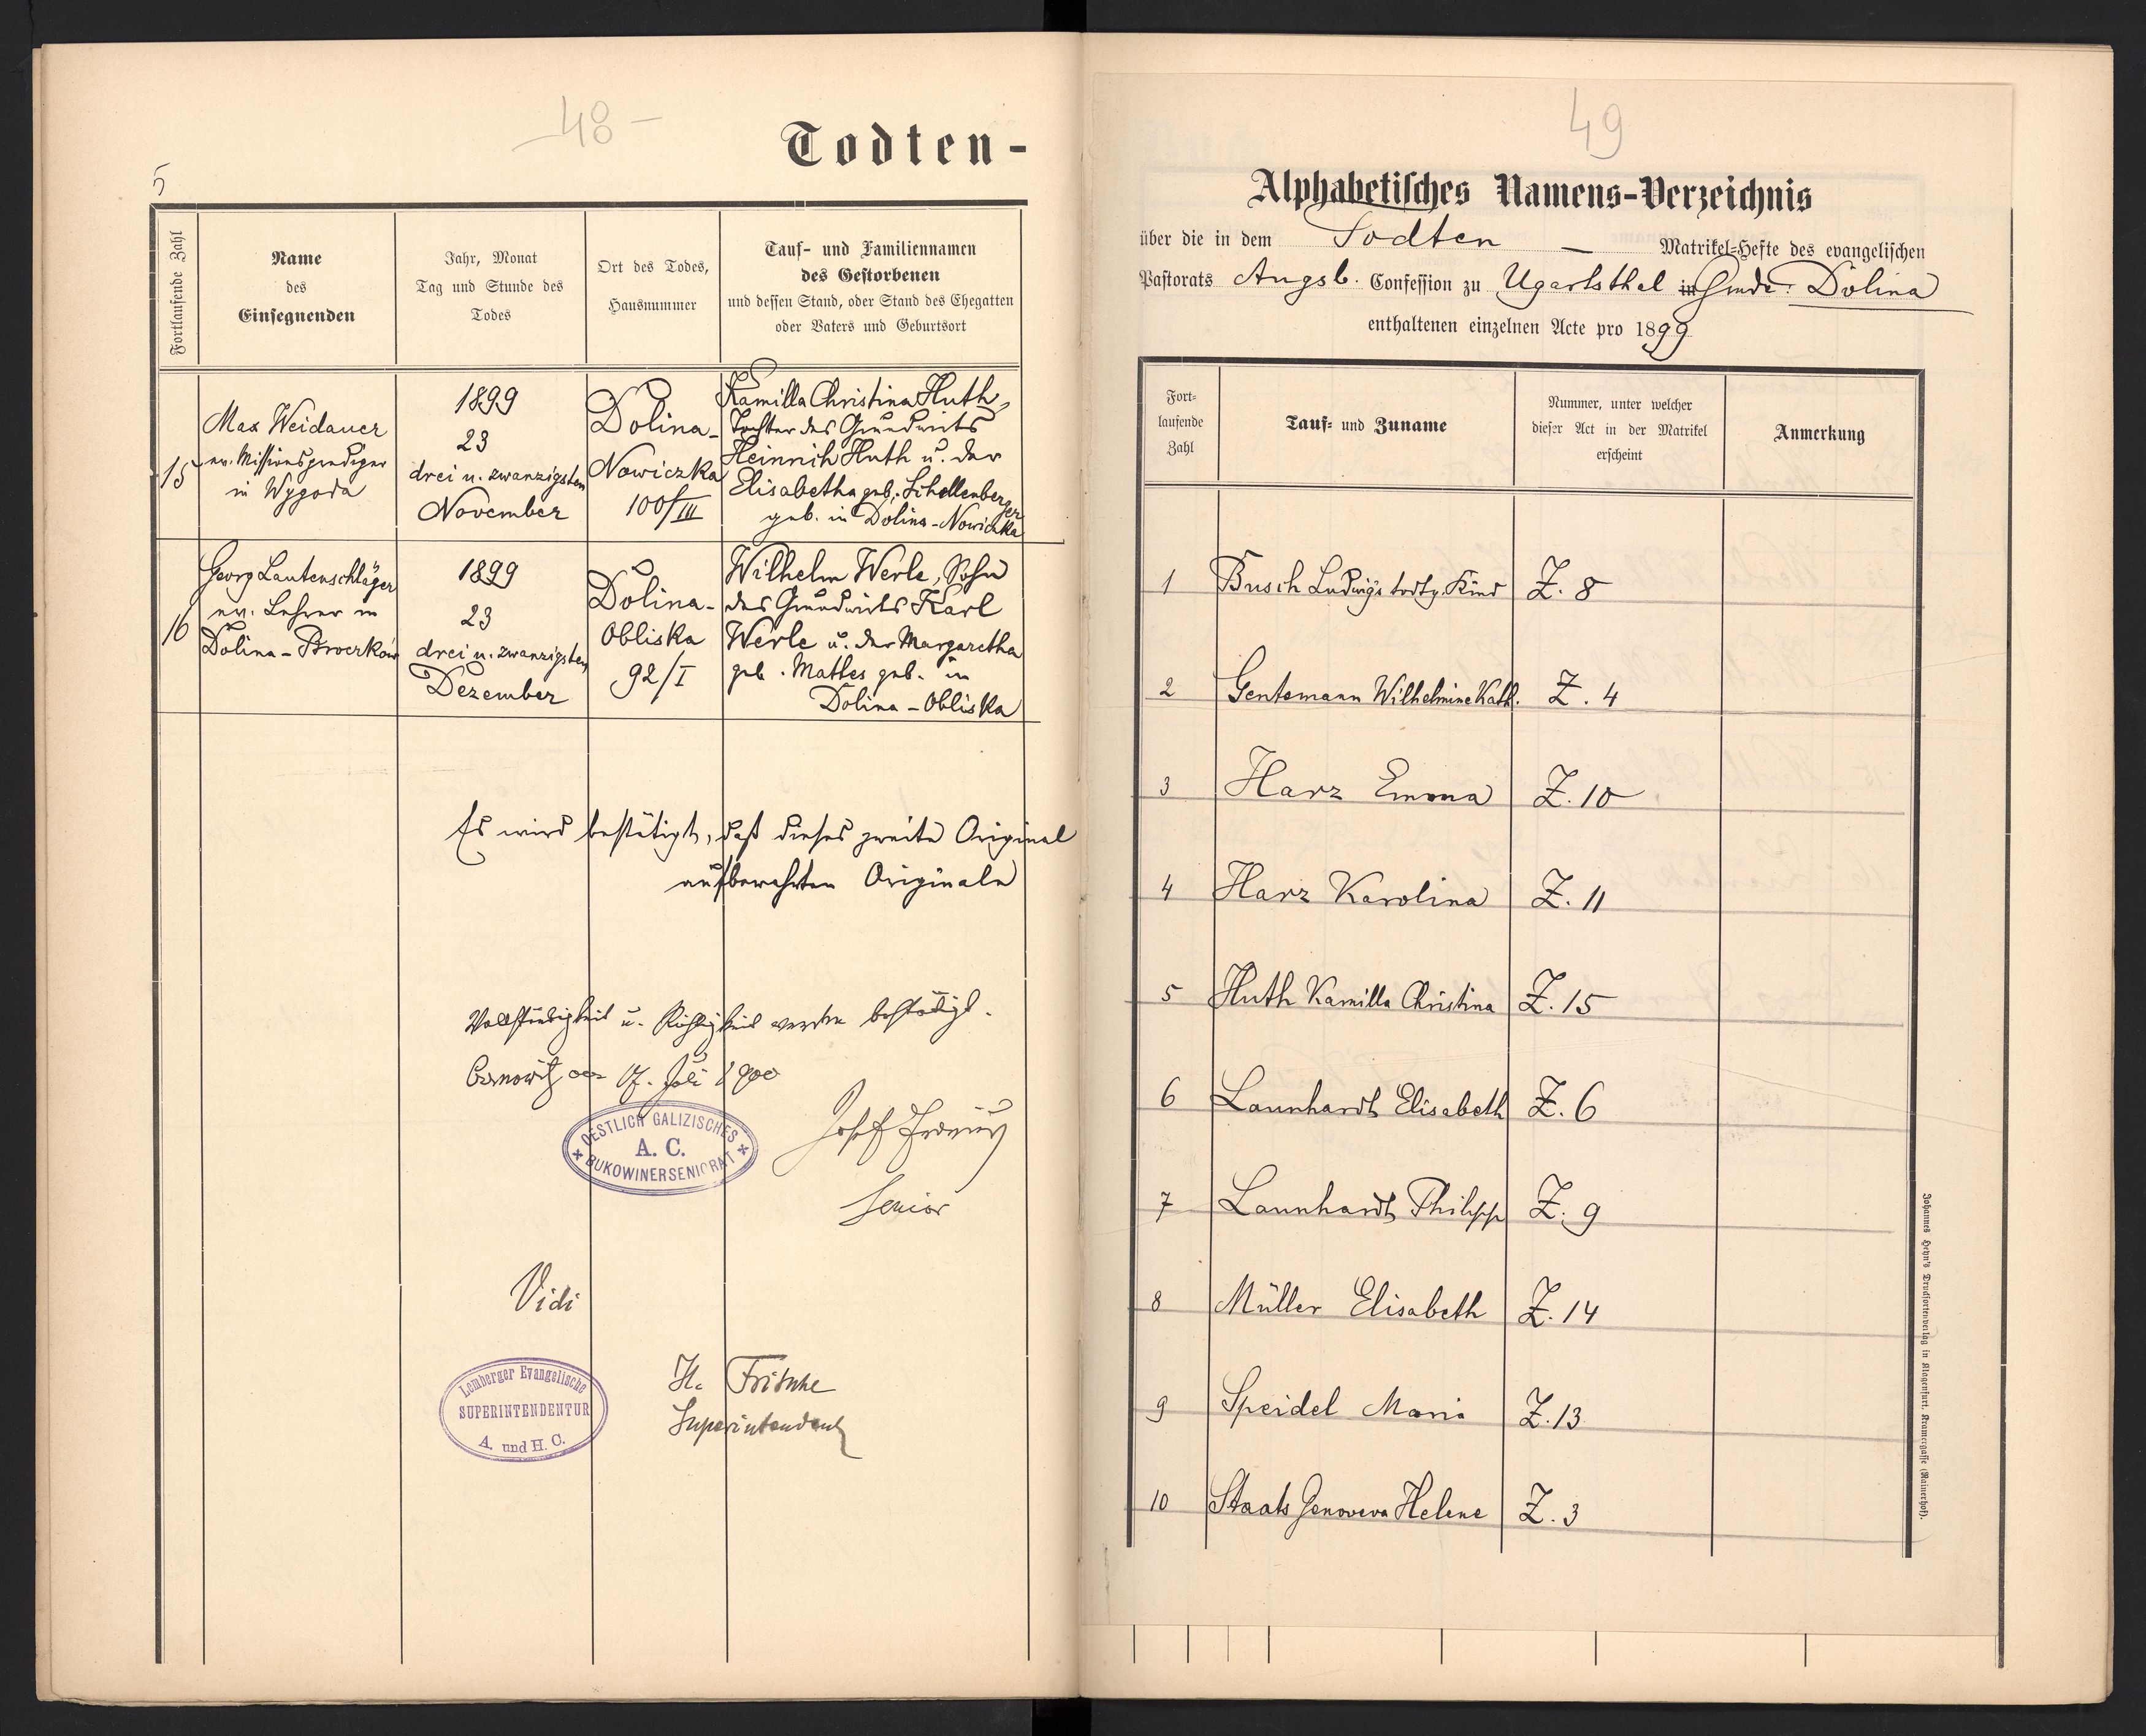 48 -
5
Todten-
Fortlaufende Zahl
Name
des
Einsegnenden
Jahr, Monat
Tag und Stunde des
Todes
Ort des Todes,
Hausnummer
Tauf- und Familiennamen
des Gestorbenen
und dessen Stand, oder Stand des Ehegatten
oder Vaters und Geburtsort
15
Max Weidauer
ev. Missionsprediger
in Wygoda
1899
23
drei u. zwanzigsten
November
Dolina-
Nowiczka
100/III
Kamilla Christina Huth,
Tochter des Grundwirts
Heinrich Huth u. der
Elisabetha geb. Schellenberger
geb. in Dolina-Nowiczka
16
Georg Lautenschläger
ev. Lehrer in
Dolina-Broczków
1899
23
drei u. zwanzigsten
Dezember
Dolina-
Obliska
92/I
Wilhelm Werle, Sohn
des Grundwirts Karl
Werle u. der Margaretha
geb. Mattes geb. in
Dolina-Obliska
Es wird bestätigt, daß dieses zweite Original
aufbewahrten Originale
Vollständigkeit u. Richtigkeit werden bestätigt.
17. Juli 1900
OESTLICH GALIZISCHES
A. C.
BUKOWINER SENIORAT
Josef
Senior
Vidi
Lemberger Evangelische
SUPERINTENDENTUR
A. und H. C.
H. Fritsche
Superintendent
49
Alphabetisches Namens-Verzeichnis
über die in dem Todten - Matrikel-Hefte des evangelischen
Pastorats Augsb. Confession zu Ugartsthal in Gmde: Dolina
enthaltenen einzelnen Acte pro 1899
Fort-
laufende
Zahl
Tauf- und Zuname
Nummer, unter welcher
dieser Act in der Matrikel
erscheint
Anmerkung
1 Busch Ludwigs todtg. Kind Z. 8
2 Gentemann Wilhelmine Kath. Z. 4
3 Harz Emma Z. 10
4 Harz Karolina Z. 11
5 Huth Kamilla Christina Z. 15
6 Launhardt Elisabeth Z. 6
7 Launhardt Philipp Z. 9
8 Müller Elisabeth Z. 14
9 Speidel Maria Z. 13
10 Staats Genoveva Helene Z. 3
Johannes Heyn's Drucksortenverlag in Klagenfurt, Kramergasse (Rainerhof).